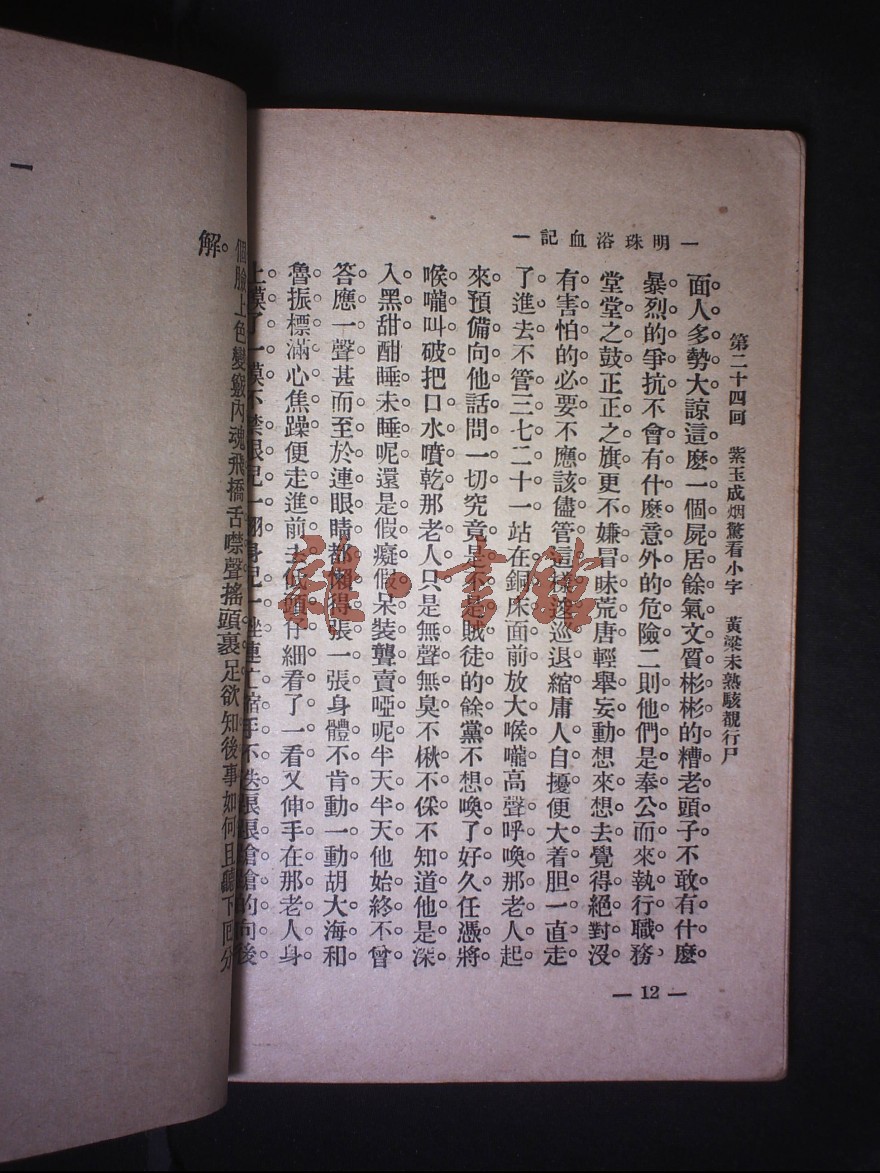 一 明珠浴血記 一
第二十四回 紫玉成烟驚看小字 黃粱未熟駭覩行尸
面人多勢大諒這麽一個屍居餘氣文質彬彬的糟老頭子不敢有什麽
暴烈的爭抗不會有什麽意外的危險二則他們是奉公而來執行職務
堂堂之鼓正正之旗更不嫌冒昧荒唐輕舉妄動想來想去覺得絕對沒
有害怕的必要不應該儘管這樣逡巡退縮庸人自擾便大着胆一直走
了進去不管三七二十一站在銅床面前放大喉嚨高聲呼喚那老人起
來預備向他話問一切究竟是不是賊徒的餘黨不想喚了好久任憑將
喉嚨叫破把口水噴乾那老人只是無聲無臭不楸不倸不知道他是深
入黑甜酣睡未睡呢還是假癡假呆裝聾賣啞呢半天半天他始終不曾
答應一聲甚而至於連眼睛都懶得張一張身體不肯動一動胡大海和
魯振標滿心焦躁便走進前去低頭仔細看了一看又伸手在那老人身
上摸了一摸不禁眼兒一翻身兒一挫連亡縮手不迭踉踉蹌蹌的向後
個臉上色變竅內魂飛撟舌噤聲搖頭裹足欲知後事如何且聽下回分
解。
一 12 一
雜·書館
一